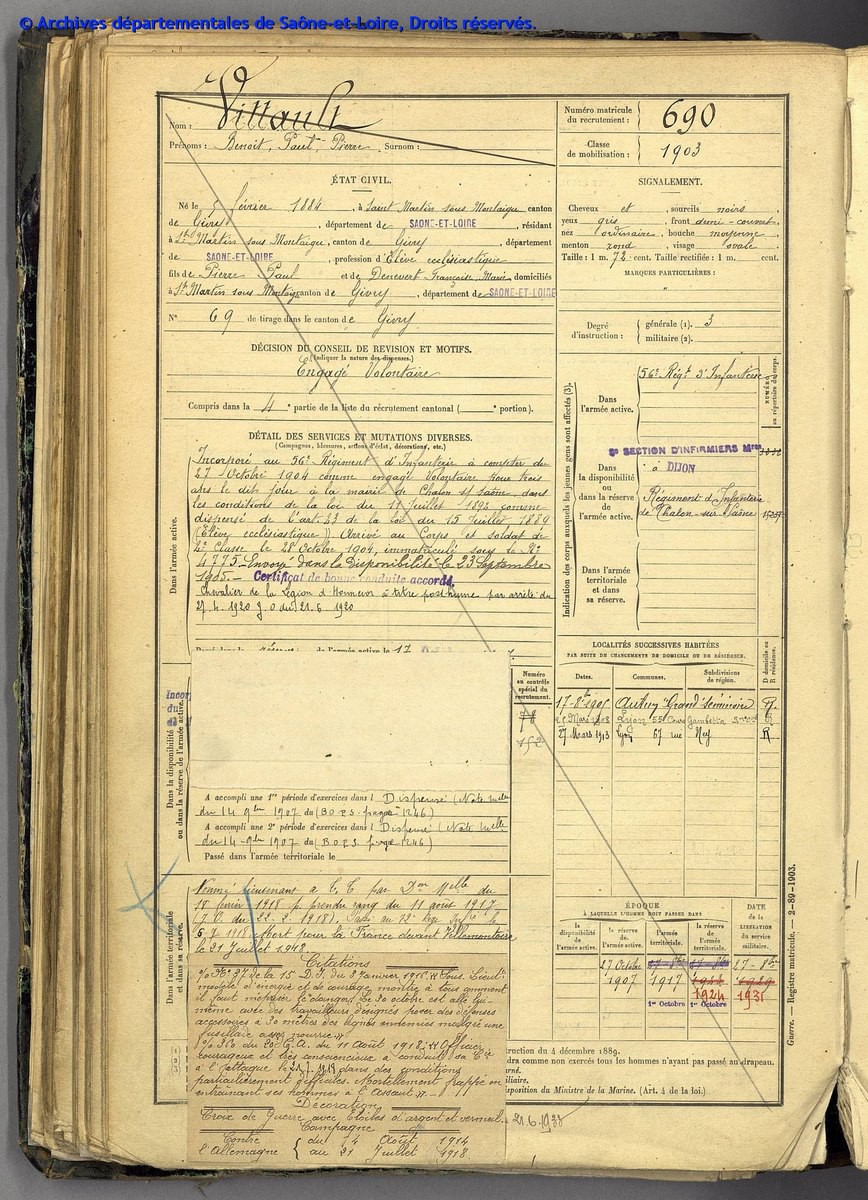 © Archives départementales de Saône-et-Loire, Droits réservés.
Nom : Villault
Prénoms : Benoit, Paul, Pierre Surnom :
Numéro matricule du recrutement : 690
Classe de mobilisation : 1903
ÉTAT CIVIL.
Né le 5 février 1884, à Saint Martin sous Montaigu canton
de Givry, département de SAONE-ET-LOIRE, résidant
à St Martin sous Montaigu, canton de Givry, département
de SAONE-ET-LOIRE, profession d'Elève ecclésiastique
fils de Pierre Paul et de Denevert Françoise Marie, domiciliés
à St Martin sous Montaigu canton de Givry, département de SAONE-ET-LOIRE
N° 69 de tirage dans le canton de Givry
SIGNALEMENT.
Cheveux et, sourcils noirs,
yeux gris, front demi-couvert,
nez ordinaire, bouche moyenne,
menton rond, visage ovale.
Taille : 1 m. 72 cent. Taille rectifiée : 1 m. cent.
MARQUES PARTICULIÈRES :
"
Degré d'instruction : générale (1). 3
militaire (2).
DÉCISION DU CONSEIL DE REVISION ET MOTIFS.
(Indiquer la nature des dispenses.)
Engagé Volontaire
Compris dans la 4e partie de la liste du recrutement cantonal ( e portion).
DÉTAIL DES SERVICES ET MUTATIONS DIVERSES.
(Campagnes, blessures, actions d'éclat, décorations, etc.)
Dans l'armée active.
Incorporé au 56e Régiment d'Infanterie à compter du
27 Octobre 1904 comme engagé Volontaire pour trois
ans le dit jour à la mairie de Chalon s/ Saône, dans
les conditions de la loi du 11 juillet 1892 comme
dispensé de l'art. 23 de la loi du 15 Juillet 1889
(Elève ecclésiastique). Arrivé au Corps et soldat de
2e Classe le 28 Octobre 1904, immatriculé sous le No
4775. Envoyé dans la Disponibilité le 23 Septembre
1905.- Certificat de bonne conduite accordé.
Chevalier de la Légion d'Honneur à titre posthume par arrêté du
27.4.1920 J.O du 21.6.1920
Indication des corps auxquels les jeunes gens sont affectés (3).
NUMÉRO au répertoire du corps.
Dans l'armée active.
56e Régt d'Infanterie
Dans la disponibilité ou dans la réserve de l'armée active.
SECTION D'INFIRMIERS Mres
à DIJON
Régiment d'Infanterie
de Chalon-sur-Saône
Dans l'armée territoriale et dans sa réserve.
réserve de l'armée active le 17
Incor
du
Dans la disponibilité ou dans la réserve de l'armée active.
Numéro au contrôle spécial du recrutement.
78
152
A accompli une 1re période d'exercices dans l Dispensé (Note Mlle
du 14 9bre 1907 du (B.O.P.S. page 1246)
A accompli une 2e période d'exercices dans l Dispensé (Note Mlle
du 14-9bre 1907 du (B.O.P.S. page 1246)
Passé dans l'armée territoriale le
LOCALITÉS SUCCESSIVES HABITÉES
PAR SUITE DE CHANGEMENTS DE DOMICILE OU DE RÉSIDENCE.
Dates. Communes. Subdivisions de région. D domicile ou R résidence.
17-8bre 1905 Autun Grand Séminaire R.
Mars 1908 Lyon 55 Cours Gambetta R
27 Mars 1913 Lyon 67 rue Ney R
Dans l'armée territoriale et dans sa réserve.
Nommé lieutenant à T.T par Don Mlle du
18 février 1918 p. prendre rang du 11 août 1917
(J.O. du 22.2.1918). Passé au 72e Rég. Infie le
6.7.1918. Mort pour la France devant Villemontoire
le 21 Juillet 1918.
Citations
No 37 de la 15 D.I. du 8 Janvier 1916. "Sous. Lieut.
modèle d'énergie et de courage, montre à tous comment
il faut mépriser le danger. Le 30 octobre est allé lui-
même avec des travailleurs désignés poser des défenses
accessoires à 30 mètres des lignes ennemies malgré une
fusillade assez nourrie."
du 20e C.A. du 11 Août 1918. "Officier
courageux et très consciencieux a conduit sa Cie
à l'attaque le 21-7-1918 dans des conditions
particulièrement difficiles. Mortellement frappé en
entraînant ses hommes à l'assaut."
Décoration
Croix de Guerre avec Etoiles d'argent et vermeil.
Campagne
Contre l'Allemagne { du 4 Août 1914
au 21 Juillet 1918.
ÉPOQUE
À LAQUELLE L'HOMME DOIT PASSER DANS
la disponibilité de l'armée active. la réserve de l'armée active. l'armée territoriale. la réserve de l'armée territoriale.
DATE de la LIBÉRATION du service militaire.
27 Octobre 17-8bre 17-8bre 27-8bre
1907 1917 1924 1929
1924 1931
1er Octobre 1er Octobre
ruction du 4 décembre 1889.
dra comme non exercés tous les hommes n'ayant pas passé au drapeau.
erné.
iliaire.
sposition du Ministre de la Marine. (Art. 4 de la loi.)
21.6.1938
Guerre. — Registre matricule. — 2-89-1903.